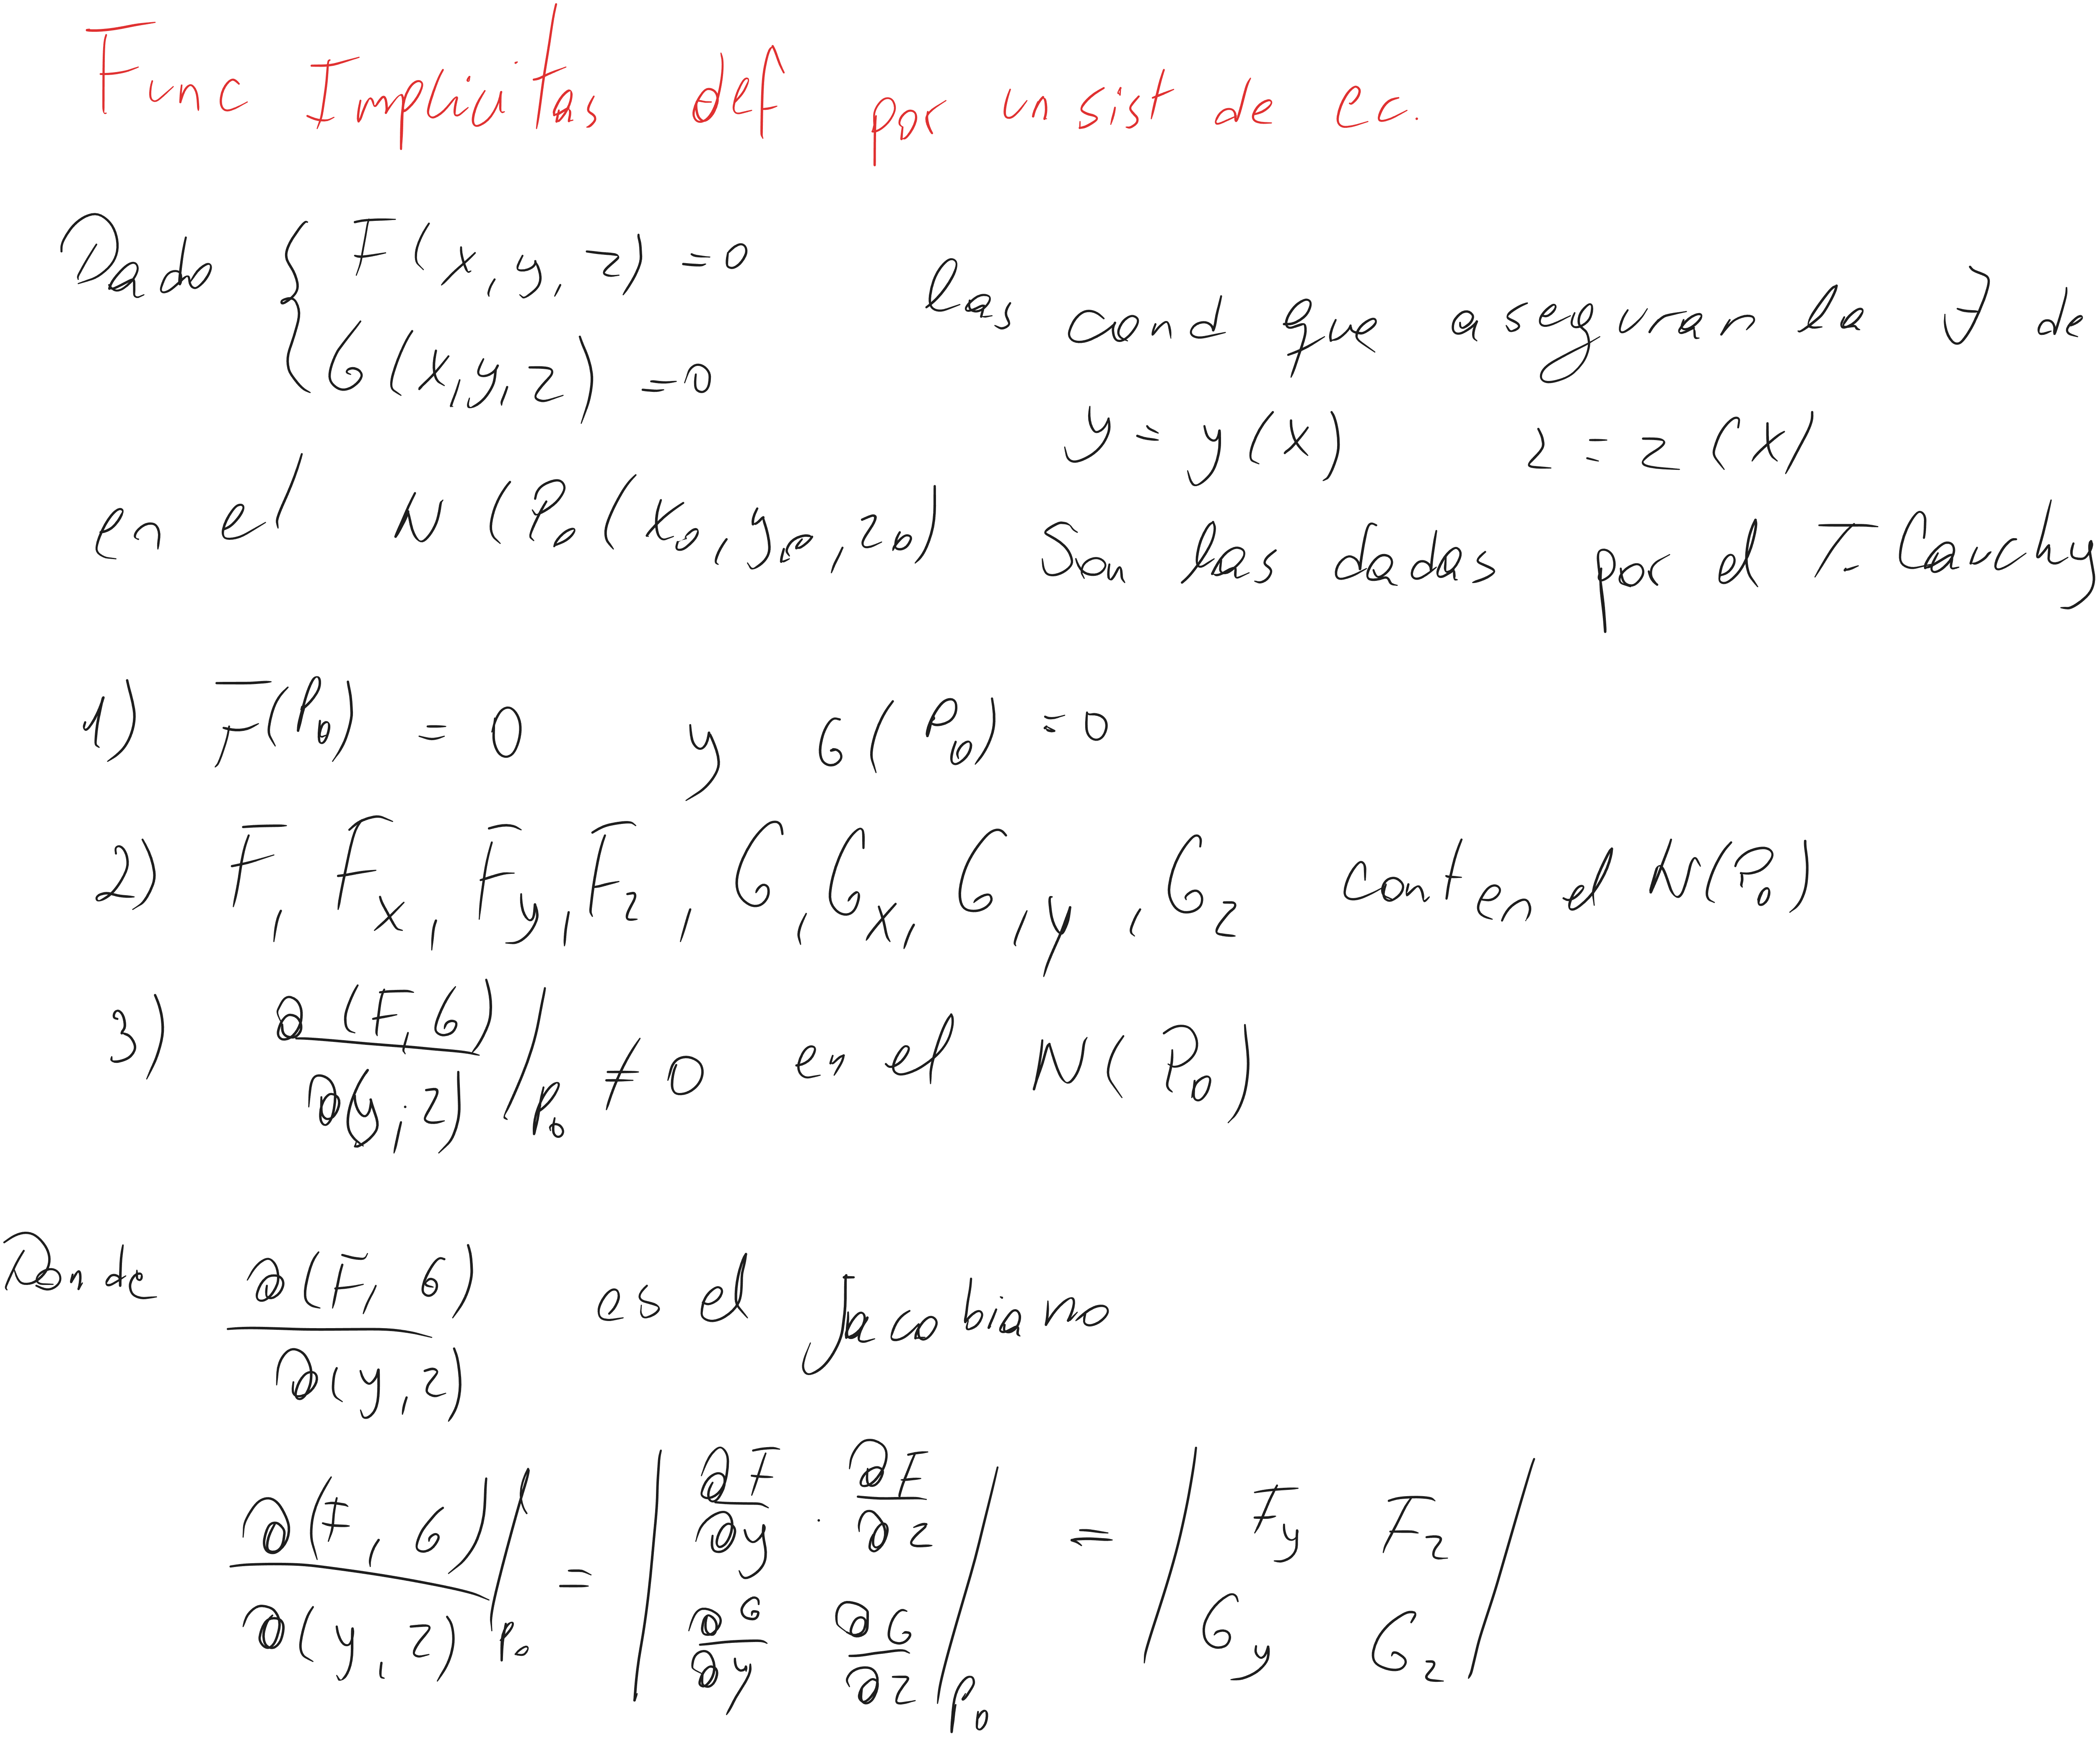 Func Implicitas def por un sist de ec.
Dado { F(x, y, z) = 0
G(x, y, z) = 0
las cond que aseguran la ∃ de
y = y(x) z = z(x)
en el N(P₀(x₀, y₀, z₀) Son las dadas por el T. Cauchy
1) F(P₀) = 0 y G(P₀) = 0
2) F, Fx, Fy, Fz, G, Gx, Gy, Gz cont en el N(P₀)
3) ∂(F, G) / ∂(y, z) |P₀ ≠ 0 en el N(P₀)
Donde ∂(F, G) / ∂(y, z) es el Jacobiano
∂(F, G) / ∂(y, z) |P₀ = | ∂F/∂y ∂F/∂z | = | Fy Fz |
| ∂G/∂y ∂G/∂z |P₀ | Gy Gz |